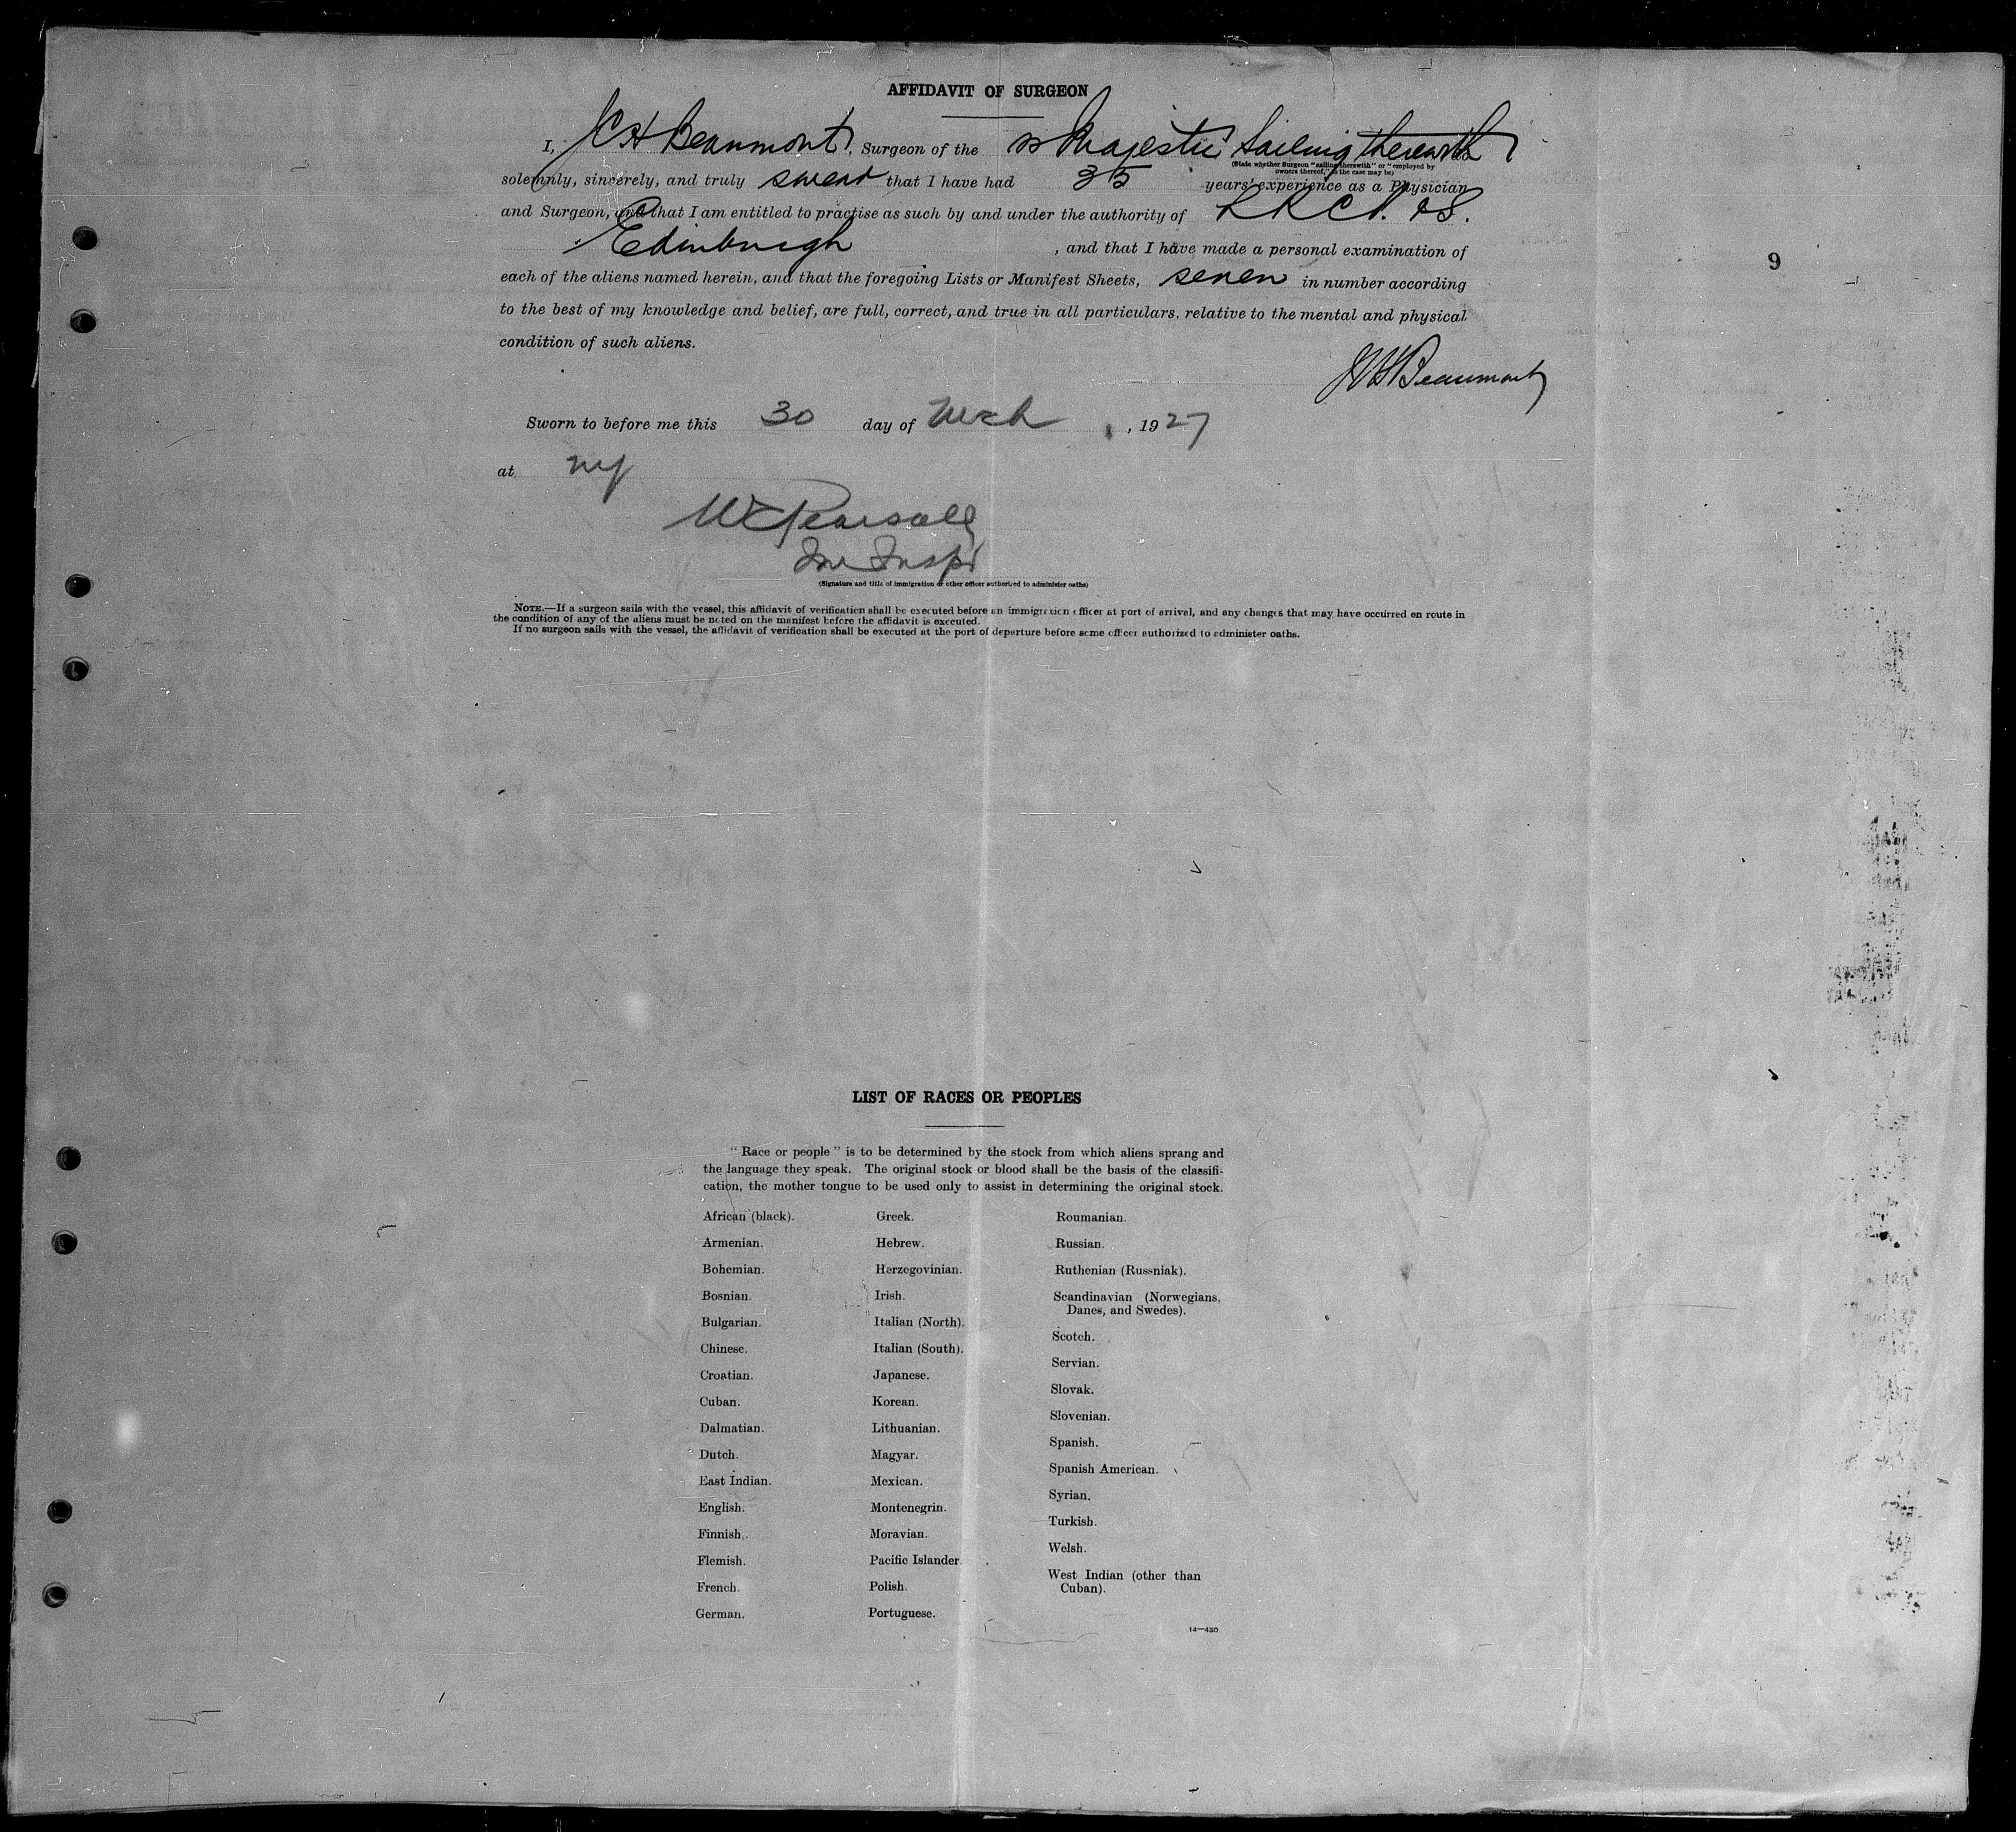 AFFIDAVIT OF SURGEON
I, J C H Beaumont, Surgeon of the ss Majestic Sailing therewith
(State whether Surgeon "sailing therewith" or "employed by
owners thereof," as the case may be)
solemnly, sincerely, and truly swear that I have had 35 years' experience as a Physician
and Surgeon, and that I am entitled to practise as such by and under the authority of L R C P. & S.
Edinburgh, and that I have made a personal examination of
each of the aliens named herein, and that the foregoing Lists or Manifest Sheets, seven in number according
to the best of my knowledge and belief, are full, correct, and true in all particulars. relative to the mental and physical
condition of such aliens.
9
J C H Beaumont
Sworn to before me this 30 day of Mch, 1927
at NY
W Pearsall
Imm Inspr
(Signature and title of immigration or other officer authorized to administer oaths)
NOTE.—If a surgeon sails with the vessel, this affidavit of verification shall be executed before an immigration officer at port of arrival, and any changes that may have occurred en route in
the condition of any of the aliens must be noted on the manifest before the affidavit is executed.
If no surgeon sails with the vessel, the affidavit of verification shall be executed at the port of departure before some officer authorized to administer oaths.
LIST OF RACES OR PEOPLES
"Race or people" is to be determined by the stock from which aliens sprang and
the language they speak. The original stock or blood shall be the basis of the classifi-
cation, the mother tongue to be used only to assist in determining the original stock.
African (black).
Armenian.
Bohemian.
Bosnian.
Bulgarian.
Chinese.
Croatian.
Cuban.
Dalmatian.
Dutch.
East Indian.
English.
Finnish.
Flemish.
French.
German.
Greek.
Hebrew.
Herzegovinian.
Irish.
Italian (North).
Italian (South).
Japanese.
Korean.
Lithuanian.
Magyar.
Mexican.
Montenegrin.
Moravian.
Pacific Islander.
Polish.
Portuguese.
Roumanian.
Russian.
Ruthenian (Russniak).
Scandinavian (Norwegians,
Danes, and Swedes).
Scotch.
Servian.
Slovak.
Slovenian.
Spanish.
Spanish American.
Syrian.
Turkish.
Welsh.
West Indian (other than
Cuban).
14—430